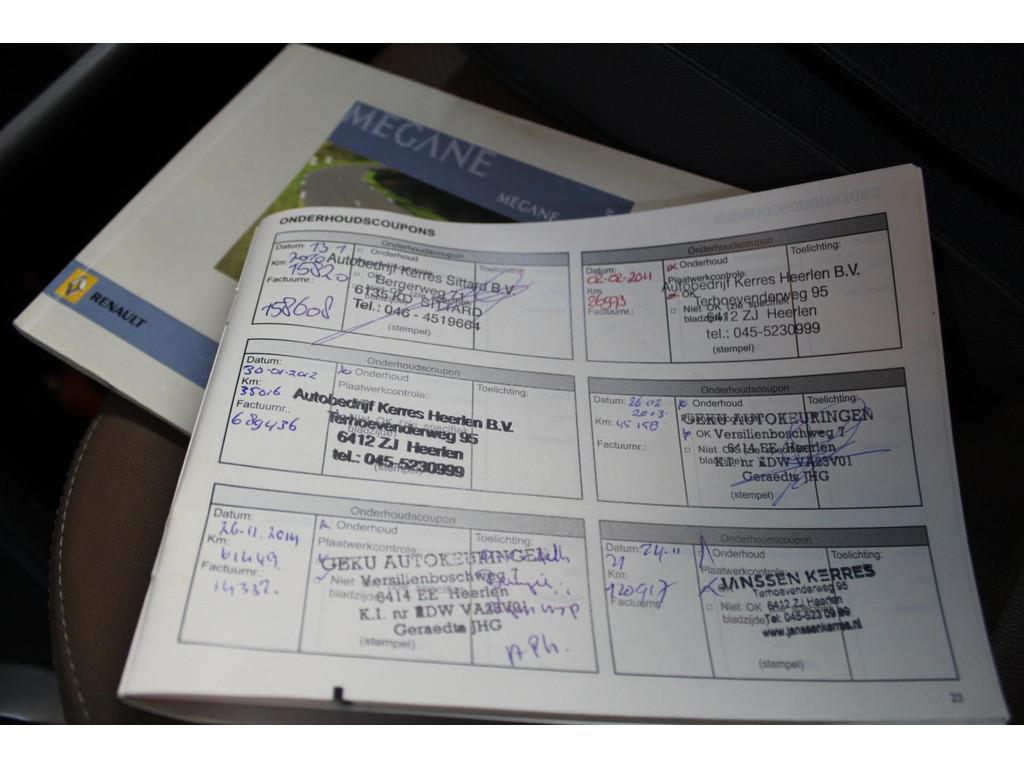 MEGANE
MEGANE
RENAULT
ONDERHOUDSCOUPONS
Onderhoudscoupon
Datum: 13 1
2010
Km: 15820
Factuurnr.:
158608
Onderhoud
Toelichting:
Autobedrijf Kerres Sittard B.V.
Bergerweg
6135 KD SITTARD
Tel.: 046 - 4519664
(stempel)
Onderhoudscoupon
Datum:
02-02-2011
Km:
26993
Factuurnr.:
Onderhoud
Plaatwerkcontrole:
OK
Niet OK (zie specifiek
bladzijde
Toelichting:
Autobedrijf Kerres Heerlen B.V.
Terhoevenderweg 95
6412 ZJ Heerlen
tel.: 045-5230999
(stempel)
Onderhoudscoupon
Datum:
30-01-2012
Km:
35016
Factuurnr.:
689436
Onderhoud
Plaatwerkcontrole:
Toelichting:
Autobedrijf Kerres Heerlen B.V.
Terhoevenderweg 95
6412 ZJ Heerlen
tel.: 045-5230999
(stempel)
Onderhoudscoupon
Datum: 26 02
2013
Km: 45 158
Factuurnr.:
Onderhoud
OK
Niet OK
Toelichting:
GEKU AUTOKEURINGEN
Versilienboschweg 7
6414 EE Heerlen
K.I. nr RDW VA23V01
Geraedts JHG
(stempel)
Onderhoudscoupon
Datum:
26-11-2014
Km:
61449
Factuurnr.:
14332.
Onderhoud
Plaatwerkcontrole:
Niet
bladzijde
Toelichting:
GEKU AUTOKEURINGEN
Versilienboschweg 7
6414 EE Heerlen
K.I. nr RDW VA23V01
Geraedts JHG
(stempel)
Onderhoudscoupon
Datum: 24-11
21
Km:
120917
Factuurnr.:
Onderhoud
Plaatwerkcontrole:
OK
Niet OK
bladzijde
Toelichting:
JANSSEN KERRES
Terhoevenderweg 95
6412 ZJ Heerlen
Tel: 045-523 09 99
www.janssenkerres.nl
(stempel)
23